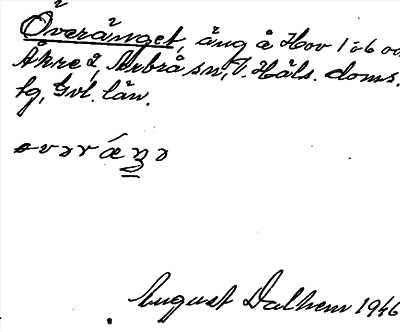 Överänget, äng å Hov 1:6 oc
Åkre 2, Arbrå sn, V. Häls. doms.
tg, Gvl. län.
August Dalhem 1946